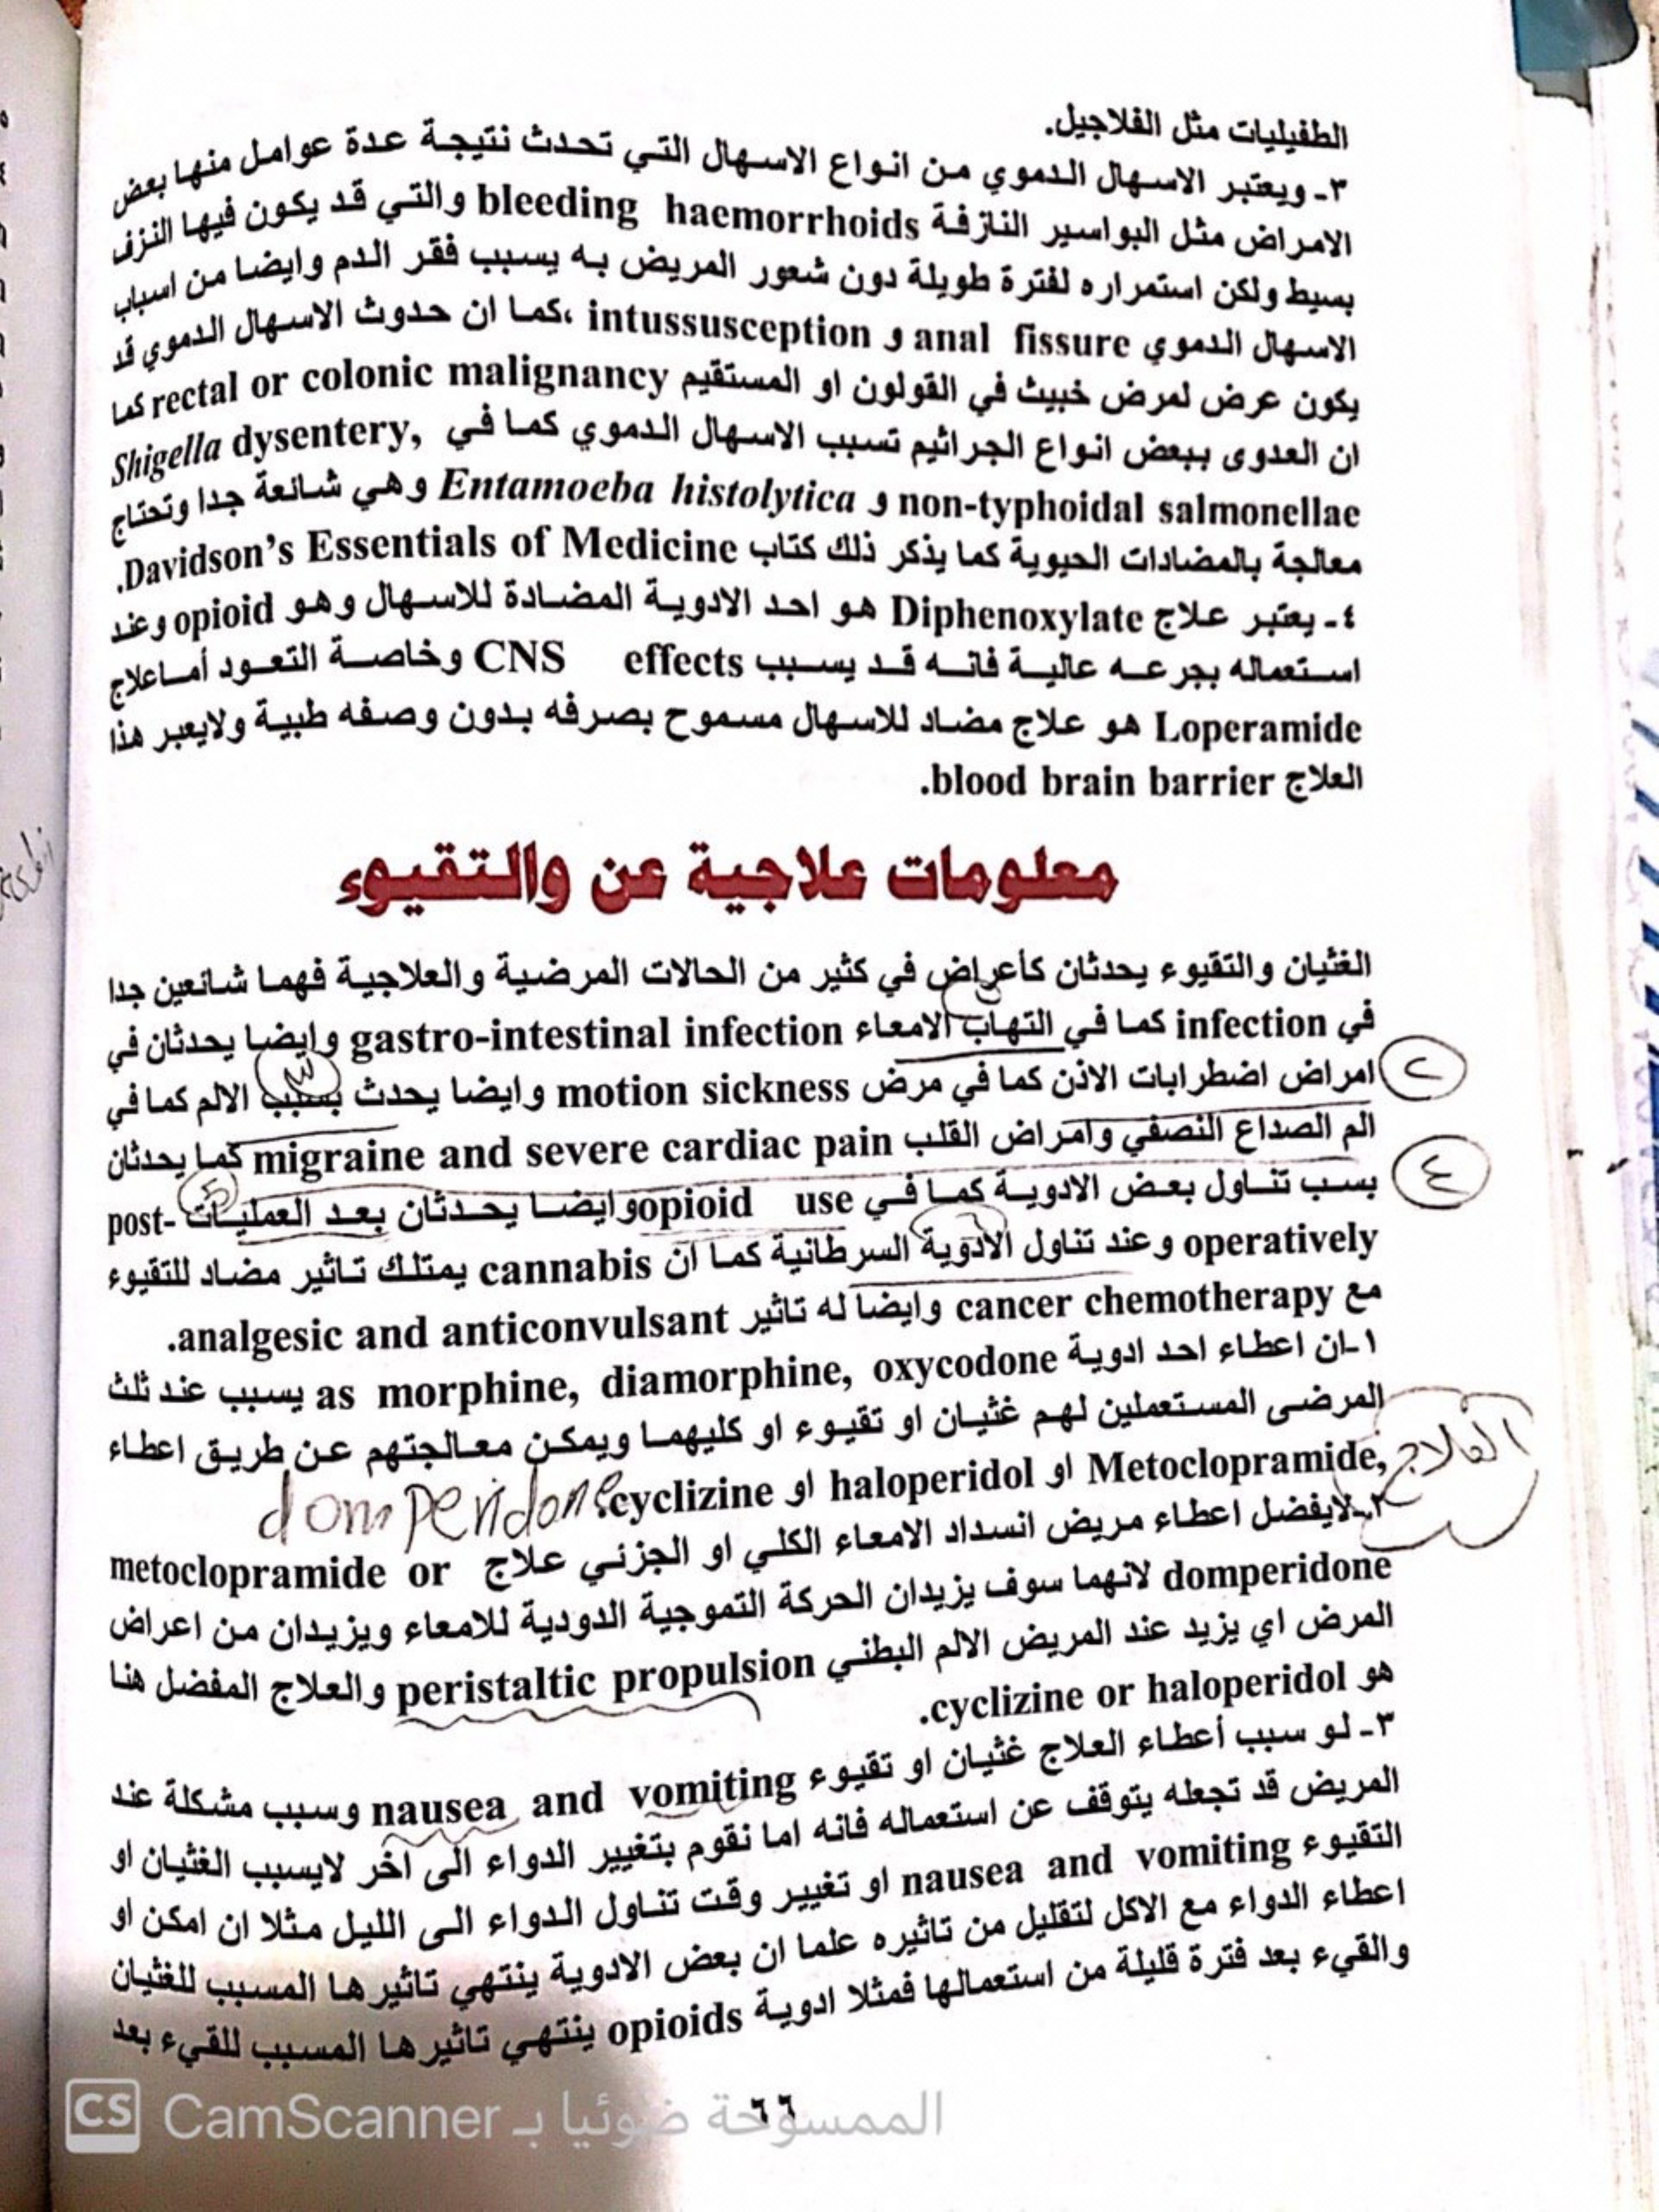 الطفيليات مثل الفلاجيل.
٣- ويعتبر الاسهال الدموي من انواع الاسهال التي تحدث نتيجة عدة عوامل منها بعض
الامراض مثل البواسير النازفة bleeding haemorrhoids والتي قد يكون فيها النزف
بسيط ولكن استمراره لفترة طويلة دون شعور المريض به يسبب فقر الدم وايضا من اسباب
الاسهال الدموي anal fissure و intussusception ،كما ان حدوث الاسهال الدموي قد
يكون عرض لمرض خبيث في القولون او المستقيم rectal or colonic malignancy كما
ان العدوى ببعض انواع الجراثيم تسبب الاسهال الدموي كما في Shigella dysentery,
non-typhoidal salmonellae و Entamoeba histolytica وهي شائعة جدا وتحتاج
معالجة بالمضادات الحيوية كما يذكر ذلك كتاب Davidson's Essentials of Medicine.
٤- يعتبر علاج Diphenoxylate هو احد الادوية المضادة للاسهال وهو opioid وعند
استعماله بجرعه عالية فانه قد يسبب CNS effects وخاصة التعود أماعلاج
Loperamide هو علاج مضاد للاسهال مسموح بصرفه بدون وصفه طبية ولايعبر هذا
العلاج blood brain barrier.
معلومات علاجية عن والتقيوء
الغثيان والتقيوء يحدثان كأعراض في كثير من الحالات المرضية والعلاجية فهما شائعين جدا
في infection كما في التهاب الامعاء gastro-intestinal infection وايضا يحدثان في
٢ امراض اضطرابات الاذن كما في مرض motion sickness وايضا يحدث بسبب الالم كما في
٣
الم الصداع النصفي وامراض القلب migraine and severe cardiac pain كما يحدثان
٤ بسب تناول بعض الادوية كما في opioid use وايضا يحدثان بعد العمليات post-
operatively وعند تناول الأدوية السرطانية كما ان cannabis يمتلك تاثير مضاد للتقيوء
مع cancer chemotherapy وايضا له تاثير analgesic and anticonvulsant.
١-ان اعطاء احد ادوية as morphine, diamorphine, oxycodone يسبب عند ثلث
المرضى المستعملين لهم غثيان او تقيوء او كليهما ويمكن معالجتهم عن طريق اعطاء
العلاج
Metoclopramide, او haloperidol او cyclizine.
domperidone
٢-لايفضل اعطاء مريض انسداد الامعاء الكلي او الجزئي علاج metoclopramide or
domperidone لانهما سوف يزيدان الحركة التموجية الدودية للامعاء ويزيدان من اعراض
المرض اي يزيد عند المريض الالم البطني peristaltic propulsion والعلاج المفضل هنا
هو cyclizine or haloperidol.
٣- لو سبب أعطاء العلاج غثيان او تقيوء nausea and vomiting وسبب مشكلة عند
المريض قد تجعله يتوقف عن استعماله فانه اما نقوم بتغيير الدواء الى اخر لايسبب الغثيان او
التقيوء nausea and vomiting او تغيير وقت تناول الدواء الى الليل مثلا ان امكن او
اعطاء الدواء مع الاكل لتقليل من تاثيره علما ان بعض الادوية ينتهي تاثيرها المسبب للغثيان
والقيء بعد فترة قليلة من استعمالها فمثلا ادوية opioids ينتهي تاثيرها المسبب للقيء بعد
٦٦
CS CamScanner الممسوحة ضوئيا بـ